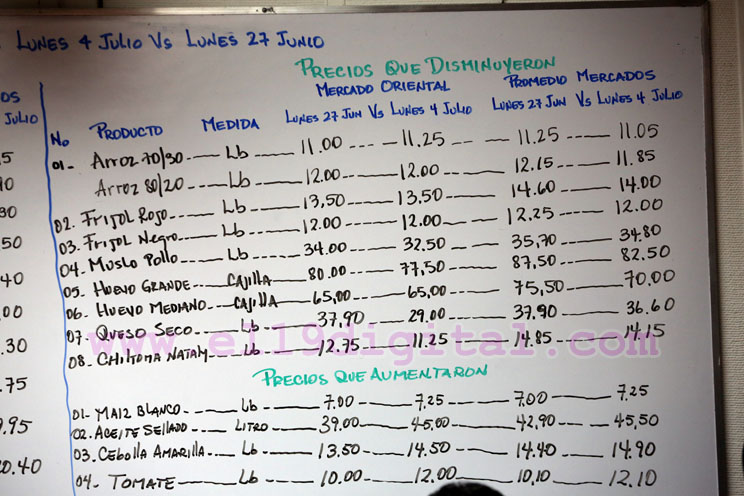 LUNES 4 JULIO VS LUNES 27 JUNIO
PRECIOS QUE DISMINUYERON
MERCADO ORIENTAL PROMEDIO MERCADOS
No PRODUCTO MEDIDA LUNES 27 JUN VS LUNES 4 JULIO LUNES 27 JUN VS LUNES 4 JULIO
01- Arroz 70/30 Lb 11.00 11.25 11.25 11.05
Arroz 80/20 Lb 12.00 12.00 12.15 11.85
02. Frijol Rojo Lb 13,50 13,50 14.60 14.00
03. Frijol Negro Lb 12.00 12.00 12.25 12.00
04. Muslo Pollo Lb 34.00 32.50 35,70 34.80
05- HUEVO GRANDE CAJILLA 80.00 77,50 87,50 82.50
06- HUEVO MEDIANO CAJILLA 65,00 65,00 75,50 70.00
07- QUESO SECO Lb 37,90 29.00 37,90 36.60
08- CHILTOMA NATALY Lb 12.75 11.25 14.85 14.15
www.el19digital.com
PRECIOS QUE AUMENTARON
01- MAIZ BLANCO Lb 7.00 7,25 7,00 7.25
02. ACEITE SELLADO LITRO 39.00 45,00 42,90 45,50
03. CEBOLLA AMARILLA Lb 13,50 14.50 14.40 14.90
04- TOMATE Lb 10.00 12.00 10,10 12.10
JULIO
.50
.40
.00
.30
.75
.95
0.40